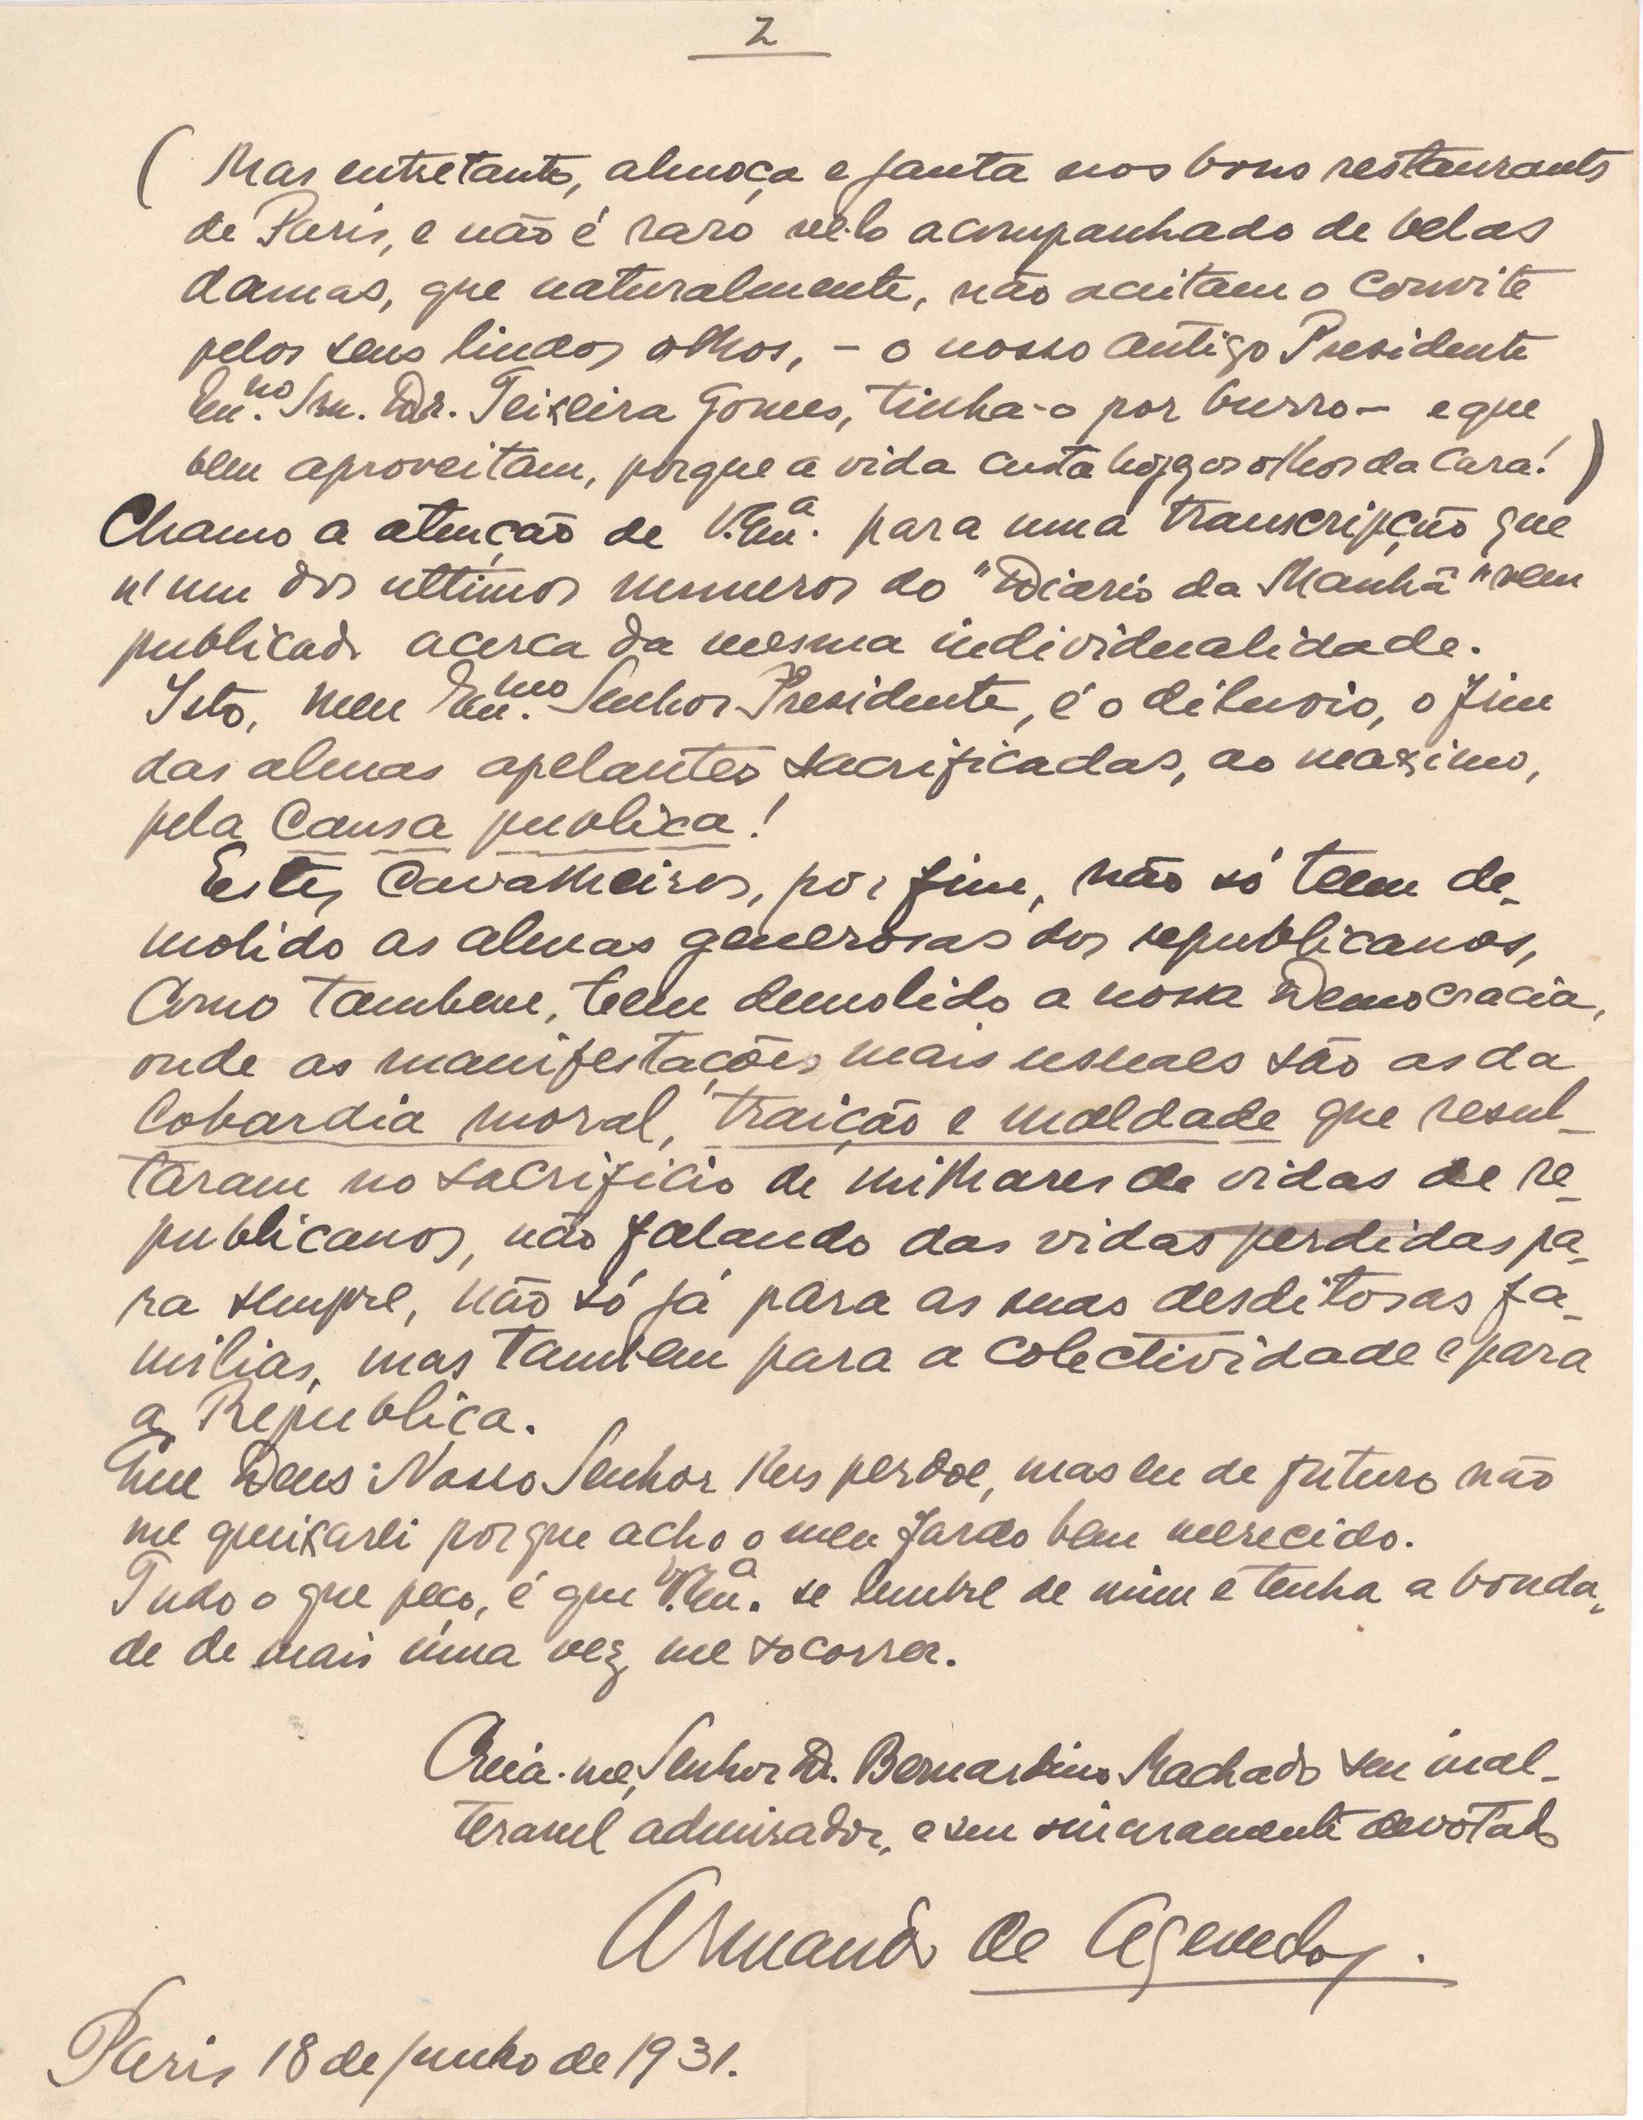 2
( Mas entretanto, almoça e janta nos bons restaurants
de Paris, e não é raro vê-lo acompanhado de belas
damas, que naturalmente, não aceitam o convite
pelos seus lindos olhos, – o nosso antigo Presidente
Exmo. Snr. Dr. Teixeira Gomes, tinha-o por burro – e que
bem aproveitam, porque a vida custa hoje os olhos da cara! )
Chamo a atenção de V. Exa. para uma transcripção que
n'um dos ultimos numeros do "Diario da Manhã" vem
publicado acerca da mesma individualidade.
Isto, meu Exmo. Senhor Presidente, é o diluvio, o fim
das almas apelantes sacrificadas, ao maximo,
pela Causa publica!
Estes Cavalheiros, por fim, não só teem de-
molido as almas generosas dos republicanos,
como tambem, teem demolido a nossa Democracia,
onde as manifestações mais usuaes são as da
Cobardia moral, traição e maldade que resul-
taram no sacrificio de milhares de vidas de re-
publicanos, não falando das vidas perdidas pa-
ra sempre, não só já para as suas desditosas fa-
milias, mas tambem para a colectividade e para
a Republica.
Que Deus Nosso Senhor lhes perdoe, mas eu de futuro não
me queixarei porque acho o meu fardo bem merecido.
Tudo o que peço, é que V. Exa. se lembre de mim e tenha a bonda-
de de mais uma vez me socorrer.
Creia-me, Senhor Dr. Bernardino Machado seu inal-
teravel admirador, e seu sinceramente devotado
Armando de Azevedo.
Paris 18 de Junho de 1931.